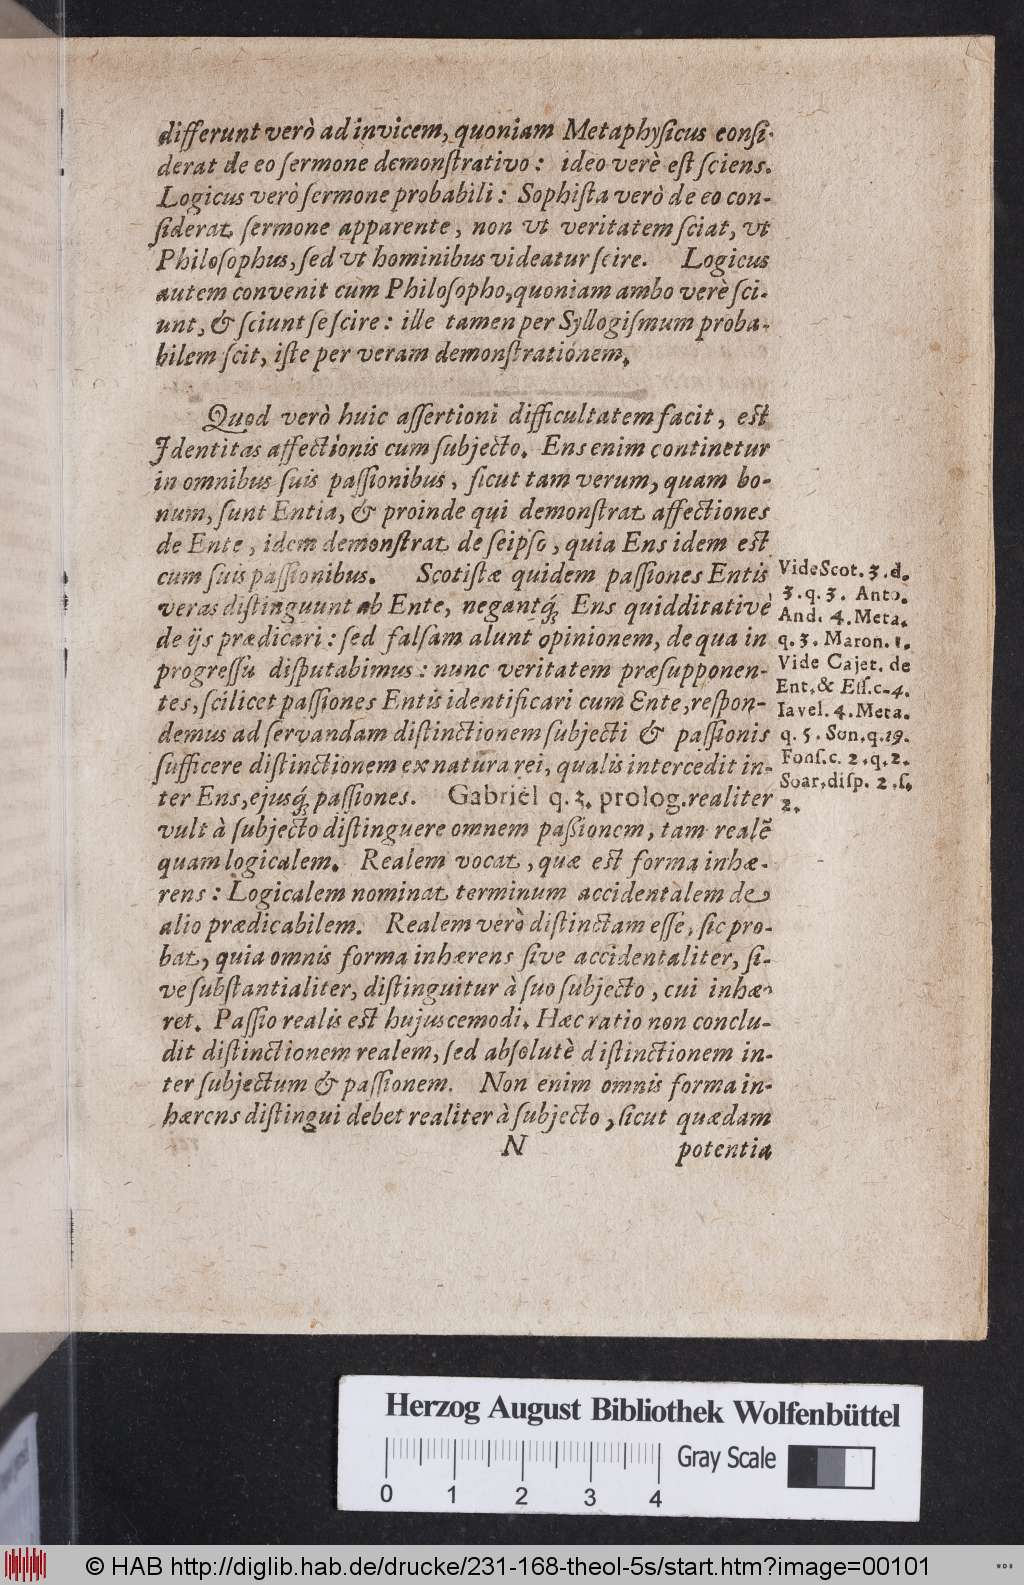 differunt verò ad invicem, quoniam Metaphysicus consi-
derat de eo sermone demonstrativo: ideo verè est sciens.
Logicus verò sermone probabili: Sophista verò de eo con-
siderat sermone apparente, non ut veritatem sciat, ut
Philosophus, sed ut hominibus videatur scire. Logicus
autem convenit cum Philosopho, quoniam ambo verè sci-
unt, & sciunt se scire: ille tamen per Syllogismum proba-
bilem scit, iste per veram demonstrationem.
Quod verò huic assertioni difficultatem facit, est
Identitas affectionis cum subjecto. Ens enim continetur
in omnibus suis passionibus, sicut tam verum, quam bo-
num, sunt Entia, & proinde qui demonstrat affectiones
de Ente, idem demonstrat de seipso, quia Ens idem est
cum suis passionibus. Scotistæ quidem passiones Entis
veras distinguunt ab Ente, negantq́; Ens quidditativè
de ijs prædicari: sed falsam alunt opinionem, de qua in
progressu disputabimus: nunc veritatem præsupponen-
tes, scilicet passiones Entis identificari cum Ente, respon-
demus ad servandam distinctionem subjecti & passionis
sufficere distinctionem ex natura rei, qualis intercedit in-
ter Ens, ejusq́; passiones. Gabriel q. 3. prolog. realiter
vult à subjecto distinguere omnem passionem, tam realẽ
quam logicalem. Realem vocat, quæ est forma inhæ-
rens: Logicalem nominat terminum accidentalem de
alio prædicabilem. Realem verò distinctam esse, sic pro-
bat, quia omnis forma inhærens sive accidentaliter, si-
ve substantialiter, distinguitur à suo subjecto, cui inhæ-
ret. Passio realis est hujuscemodi. Hæc ratio non conclu-
dit distinctionem realem, sed absolutè distinctionem in-
ter subjectum & passionem. Non enim omnis forma in-
hærens distingui debet realiter à subjecto, sicut quædam
N potentia
Vide Scot. 3. d.
3. q. 3. Anto.
And. 4. Meta.
q. 3. Maron. 1.
Vide Cajet. de
Ent. & Ess. c. 4.
Iavel. 4. Meta.
q. 5. Son. q. 19.
Fons. c. 2. q. 2.
Soar. disp. 2. s.
2.
Herzog August Bibliothek Wolfenbüttel
Gray Scale
0 1 2 3 4
© HAB http://diglib.hab.de/drucke/231-168-theol-5s/start.htm?image=00101